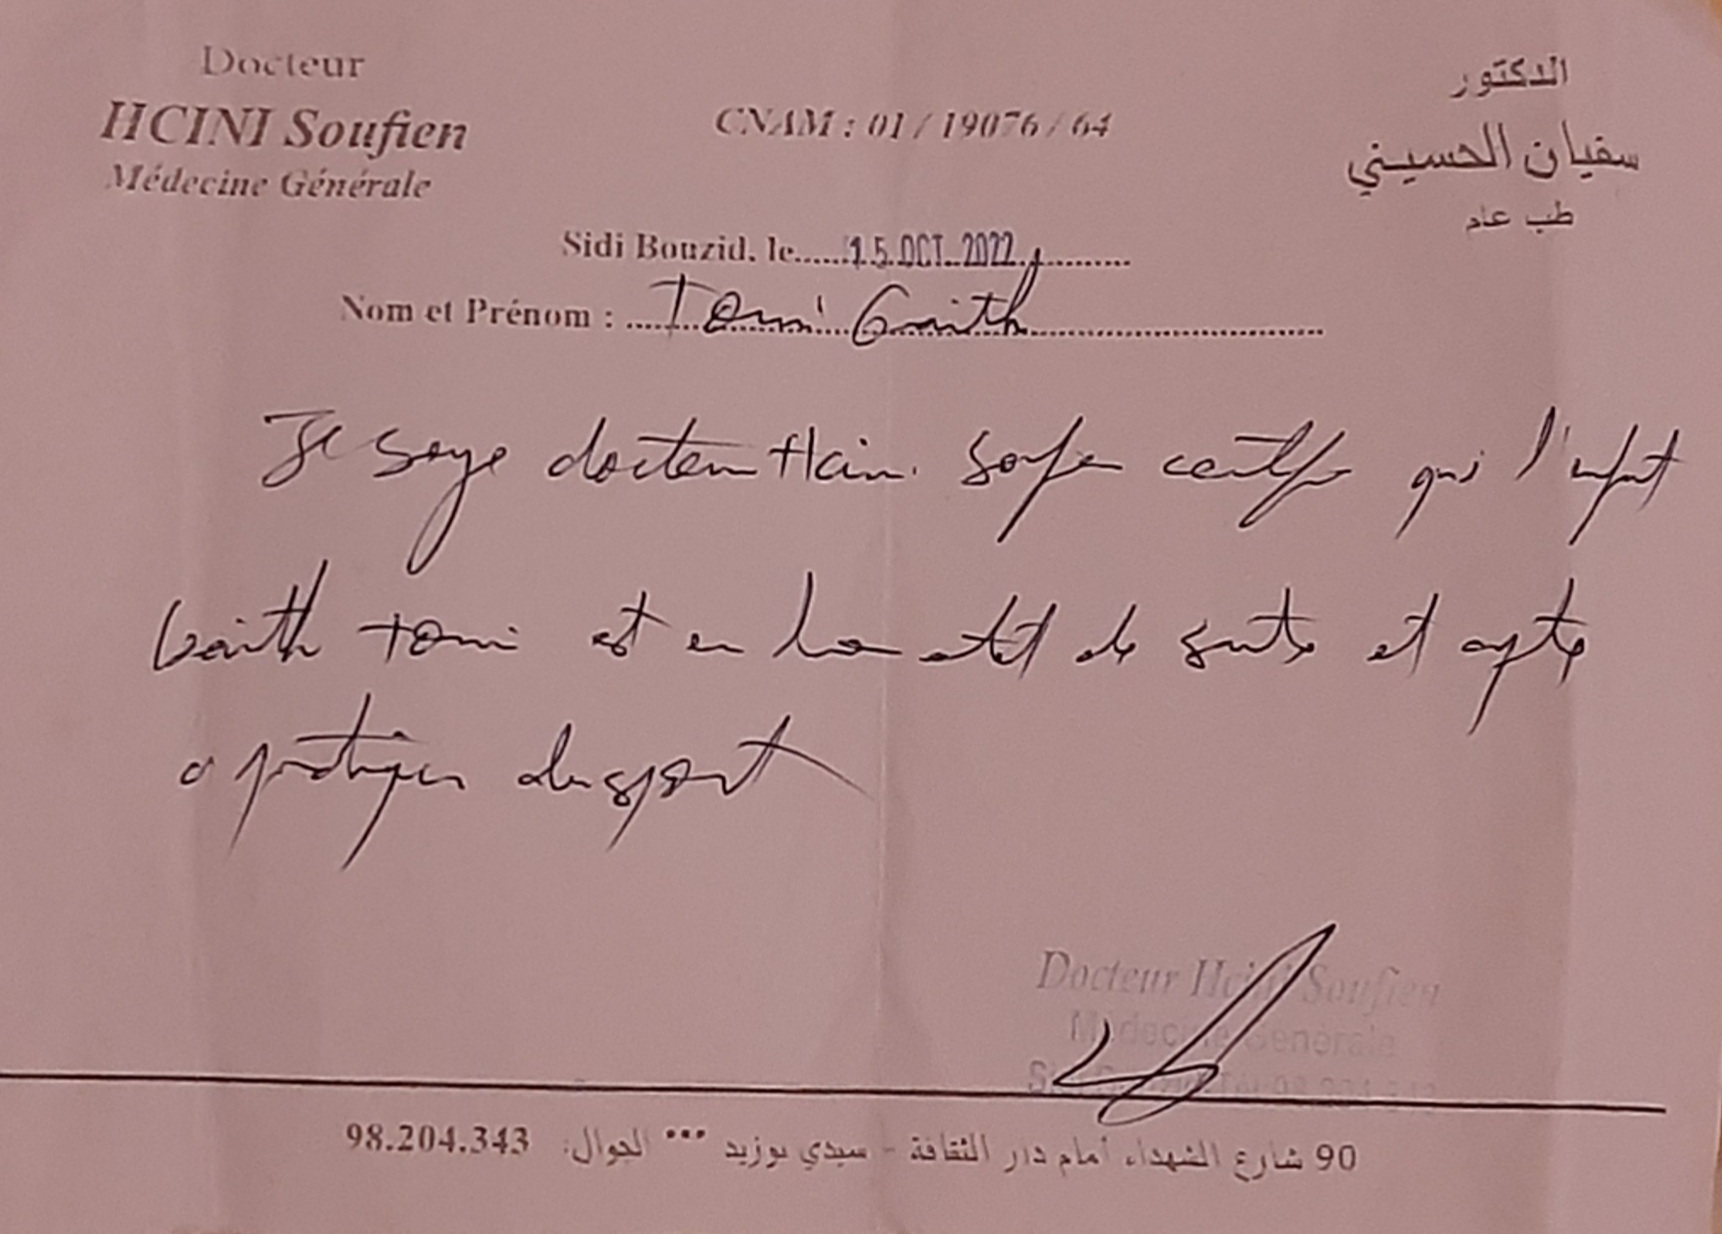 Docteur
HCINI Soufien
Médecine Générale
CNAM : 01 / 19076 / 64
الدكتور
سفيان الحسيني
طب عام
Sidi Bouzid, le......15 OCT. 2022..............
Nom et Prénom : Tomi Gaith
Je docteur Hcini certifie que l'enfant
Gaith Tomi est en bon etat de sante et apte
a pratiquer du sport
Docteur Hcini Soufien
Médecine Generale
90 شارع الشهداء أمام دار الثقافة - سيدي بوزيد *** الجوال: 98.204.343